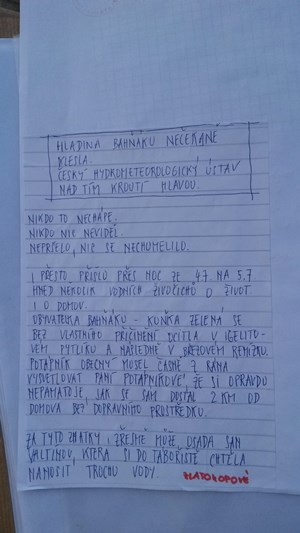 HLADINA BAHŇÁKU NEČEKANĚ
KLESLA.
ČESKÝ HYDROMETEOROLOGICKÝ ÚSTAV
NAD TÍM KROUTÍ HLAVOU.
NIKDO TO NECHÁPE.
NIKDO NIC NEVIDĚL.
NEPRŠELO, NIC SE NECHUMELILO.
I PŘESTO PŘIŠLO PŘES NOC ZE 4.7. NA 5.7.
HNED NĚKOLIK VODNÍCH ŽIVOČICHŮ O ŽIVOT
I O DOMOV.
OBYVATELKA BAHŇÁKU - KUŇKA ZELENÁ SE
BEZ VLASTNÍHO PŘIČINĚNÍ OCITLA V IGELITO-
VÉM PYTLÍKU A NÁSLEDNĚ V BŘEZOVÉM REMÍZKU.
POTÁPNÍK OBECNÝ MUSEL ČASNĚ Z RÁNA
VYSVĚTLOVAT PANÍ POTÁPNÍKOVÉ, ŽE SI OPRAVDU
NEPAMATUJE, JAK SE SÁM DOSTAL 2 KM OD
DOMOVA BEZ DOPRAVNÍHO PROSTŘEDKU.
ZA TYTO ZMATKY ZŘEJMĚ MŮŽE OSADA SAN
VALTINOV, KTERÁ SI DO TÁBOŘIŠTĚ CHTĚLA
NANOSIT TROCHU VODY.
ZLATOKOPOVÉ